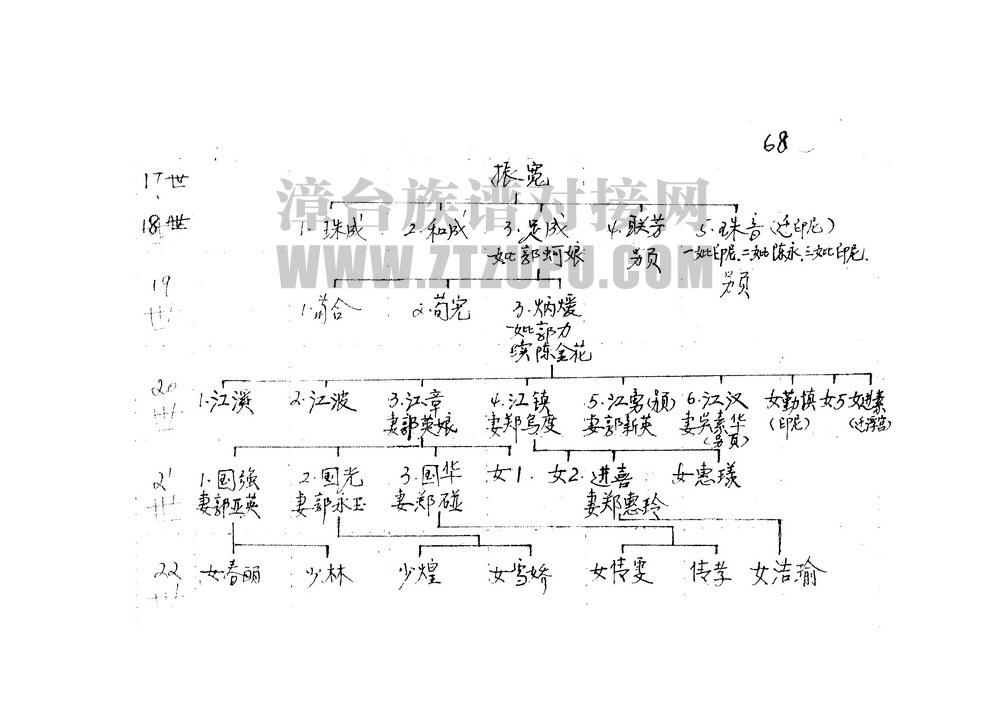 68
17世 振宽
漳台族谱对接网
WWW.ZTZUPU.COM
18世 1.珠成 2.和成 3.足成 4.联芳 5.珠音(迁印尼)
妣郭蚵娘 另页 一妣印尼.二妣陈永,三妣印尼.
另页
19世 1.荀合 2.荀宪 3.炳煖
妣郭力
续陈金花
20世 1.江溪 2.江波 3.江章 4.江镇 5.江勇 6.江汉 女勤慎 女5
妻郭英娘 妻郑乌度 妻郭新英 妻吴素华 (印尼)
(另页)
21世 1.国强 2.国光 3.国华 女1. 女2. 进喜 女惠瑛
妻郭亚英 妻郭永玉 妻郑碰 妻郑惠玲
22世 女春丽 少林 少煌 女雪娇 女倩雯 倩孝 女洁瑜